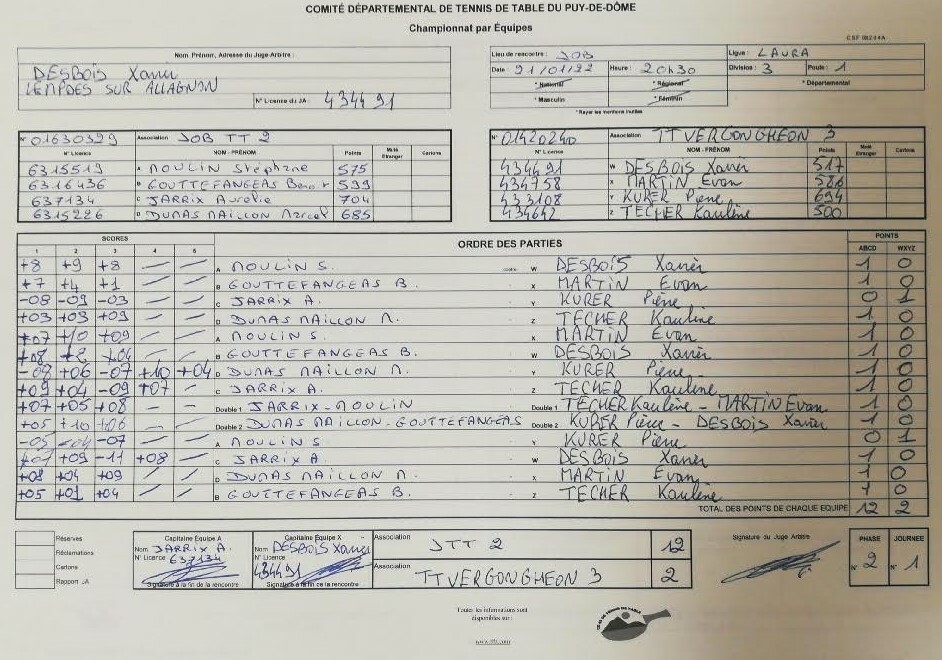 COMITÉ DÉPARTEMENTAL DE TENNIS DE TABLE DU PUY-DE-DÔME
Championnat par Équipes
Nom Prénom, Adresse du Juge Arbitre :
DESBOIS Xavier
LEMPDES SUR ALLAGNON
N° Licence du JA : 434491
Lieu de rencontre : JOB Ligue : LAURA
Date : 21/01/22 Heure : 20h30 Division : 3 Poule : 1
* National * Régional * Départemental
* Masculin * Féminin
* Rayer les mentions inutiles
N° 01630399 Association JOB TT 2
N° Licence NOM - PRÉNOM Points Muté Etranger Cartons
6315519 A MOULIN Stéphane 575
6316436 B GOUTTEFANGEAS Benoit 599
637134 C JARRIX Aurelie 704
6315226 D DUMAS MAILLON Marcel 685
N° 01420240 Association TT VERGONGHEON 3
N° Licence NOM - PRÉNOM Points Muté Etranger Cartons
434491 W DESBOIS Xavier 517
434758 X MARTIN Evan 586
433108 Y KURER Pierre 694
434642 Z TECHER Kaulène 500
SCORES ORDRE DES PARTIES POINTS
1 2 3 4 5 ABCD WXYZ
+8 +9 +8 — — A MOULIN S. W DESBOIS Xavier 1 0
+7 +4 +1 — — B GOUTTEFANGEAS B. X MARTIN Evan 1 0
-08 -09 -03 — — C JARRIX A. Y KURER Pierre 0 1
+03 +03 +09 — — D DUMAS MAILLON M. Z TECHER Kaulène 1 0
+07 +10 +09 — — A MOULIN S. X MARTIN Evan 1 0
+08 +8 +04 — — B GOUTTEFANGEAS B. W DESBOIS Xavier 1 0
-09 +06 -07 +10 +04 D DUMAS MAILLON M. Y KURER Pierre 1 0
+09 +04 -09 +07 — C JARRIX A. Z TECHER Kaulène 1 0
+07 +05 +08 — — Double 1 JARRIX - MOULIN Double 1 TECHER Kaulène - MARTIN Evan 1 0
+05 +10 +06 — — Double 2 DUMAS MAILLON - GOUTTEFANGEAS Double 2 KURER Pierre - DESBOIS Xavier 1 0
-05 -04 -07 A MOULIN S. Y KURER Pierre 0 1
+07 +09 -11 +08 — C JARRIX A. W DESBOIS Xavier 1 0
+08 +04 +09 — — D DUMAS MAILLON M. X MARTIN Evan 1 0
+05 +01 +04 — — B GOUTTEFANGEAS B. Z TECHER Kaulène 1 0
TOTAL DES POINTS DE CHAQUE EQUIPE 12 2
Réserves
Réclamations
Cartons
Rapport JA
Capitaine Equipe A
Nom JARRIX A.
N° Licence 637134
Signature à la fin de la rencontre
Capitaine Equipe X
Nom DESBOIS Xavier
N° Licence
434491
Signature à la fin de la rencontre
Association JTT 2 12
Association TT VERGONGHEON 3 2
Signature du Juge Arbitre
PHASE JOURNEE
N° 2 N° 1
Toutes les informations sont
disponibles sur :